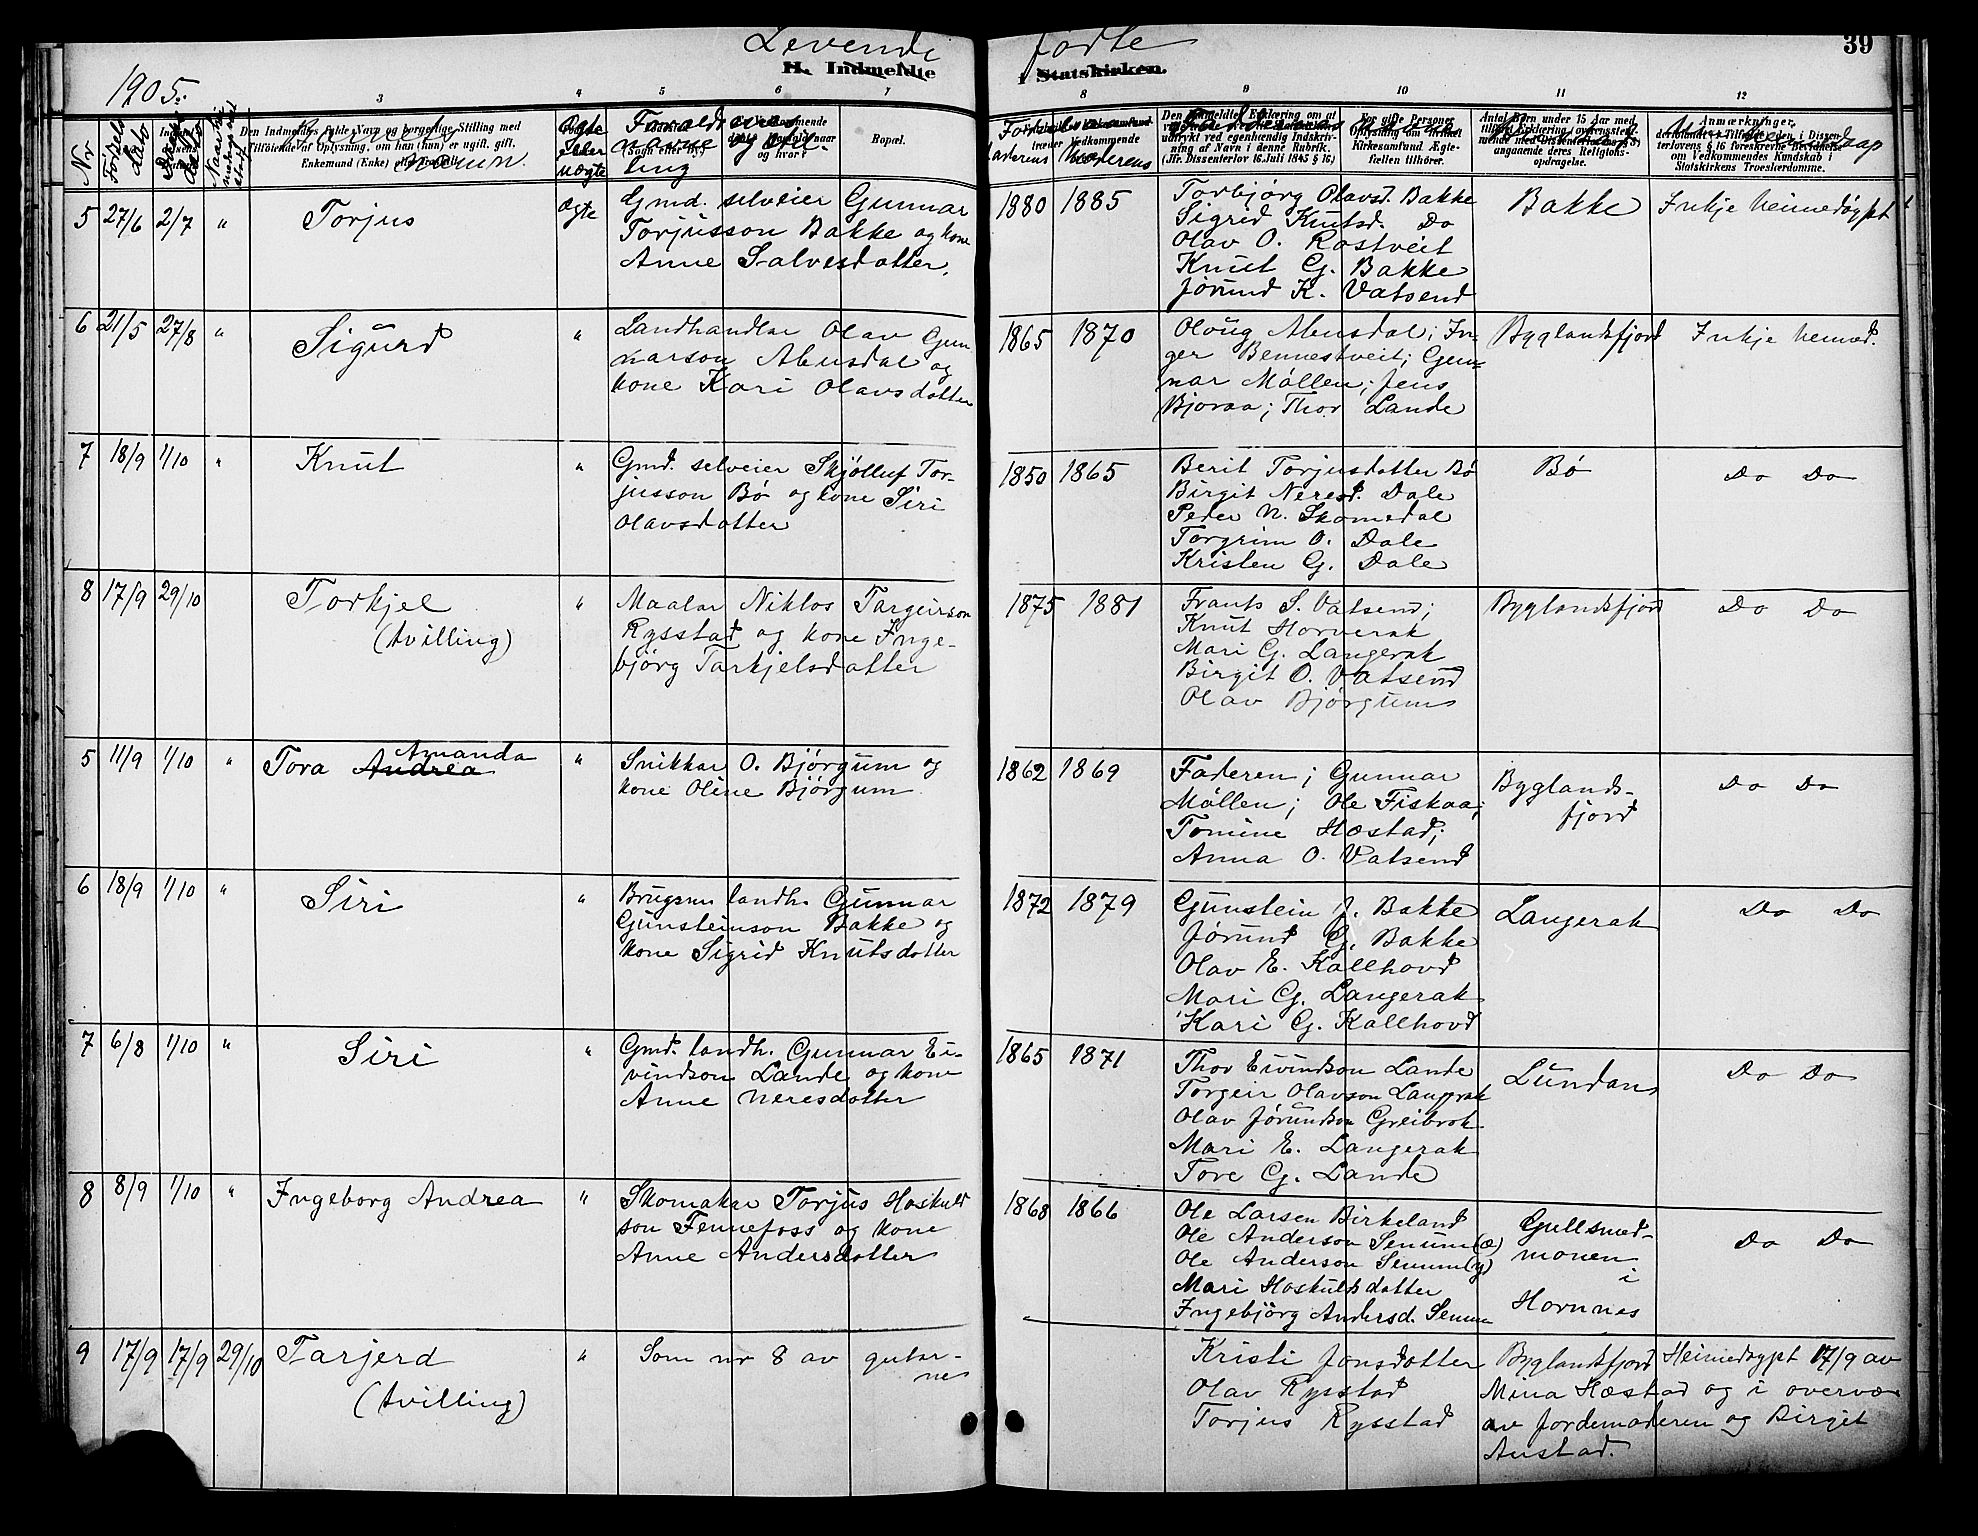 Levende fødte
H. Indmeldte i Statskirken.
39
1905.
3 4 5 6 7 8 9 10 11 12
Nr
Ropæl.
Anmærkninger,
5 27/6 2/7 " Torjus Ægte Gmd. selveier Gunnar
Torjusson Bakke og kone
Anne Salvesdatter.
1880 1885 Torbjørg Olavsd. Bakke
Sigrid Knutsd. Do
Olav O. Rostveit
Knut G. Bakke
Jørund K. Vatsend
Bakke
Inkje heimedøypt
6 21/5 27/8 " Sigurd " Landhandlar Olav Gun
narson Abusdal og
kone Kari Olavsdatter
1865 1870 Oloug Abusdal; In-
ger Bennestveit; Gun-
nar Møllen; Jens
Bjoraa; Thor Lande
Byglandsfjord
Inkje heimed.
7 18/9 1/10 " Knut " Gmd. selveier Skjølluf Tor-
jusson Bø og kone Siri
Olavsdatter
1850 1865 Berit Torjusdatter Bø
Birgit Neresd. Dale
Peder N. Skomedal
Torgrim O. Dale
Kristen G. Dale
Bø
Do Do
8 17/9 29/10 Torkjel
(tvilling)
" Maalar Niklos Targeirson
Rysstad og kone Inge-
björg Tarkjelsdatter
1875 1881 Frants S. Vatsend;
Knut Horverak
Mari G. Langerak
Birgit O. Vatsend
Olav Bjørgum
Byglandsfjord
Do Do
5 11/9 1/10 " Tora Andrea Amanda " Snikkar O. Bjørgum og
kone Oline Bjørgum
1862 1869 Faderen; Gunnar
Møllen; Ole Fiskaa;
Tomine Hæstad;
Anna O. Vatsend
Byglands-
fjord
Do Do
6 18/9 1/10 " Siri " Brugsm landh. Gunnar
Gunsteinson Bakke og
kone Sigrid Knutsdatter
1872 1879 Gunstein J. Bakke
Jørund G. Bakke
Olav E. Kallhovd
Mari G. Langerak
Kari G. Kallhovd
Langerak
Do Do
7 6/8 1/10 " Siri " Gmd. landh. Gunnar Ei-
vindson Lande og kone
Anne Neresdatter
1865 1871 Thor Eivindson Lande
Torgeir Olavson Langerak
Olav Jørundson Greibrok
Mari E. Langerak
Tore G. Lande
Lundan
Do Do
8 8/9 1/10 " Ingeborg Andrea " Skomakar Torjus Hoskuld
son Fennefoss og kone
Anne Andersdatter
1868 1866 Ole Larsen Birkeland
Ole Anderson Senum (æ)
Ole Anderson Senum (y)
Mari Hoskuldsdatter
Ingebjörg Andersd. Senum
Gullsmed-
monen
i
Hornnes
Do Do
9 17/9 17/9 29/10 Tarjerd
(tvilling)
" Som nr 8 av gutar-
ne
Kristi Jonsdatter
Olav Rysstad
Torjus Rysstad
Byglandsfjord
Heimedøypt 17/9 av
Mina Hæstad og i overvær
av Jordemoderen og Birgit
Austad.